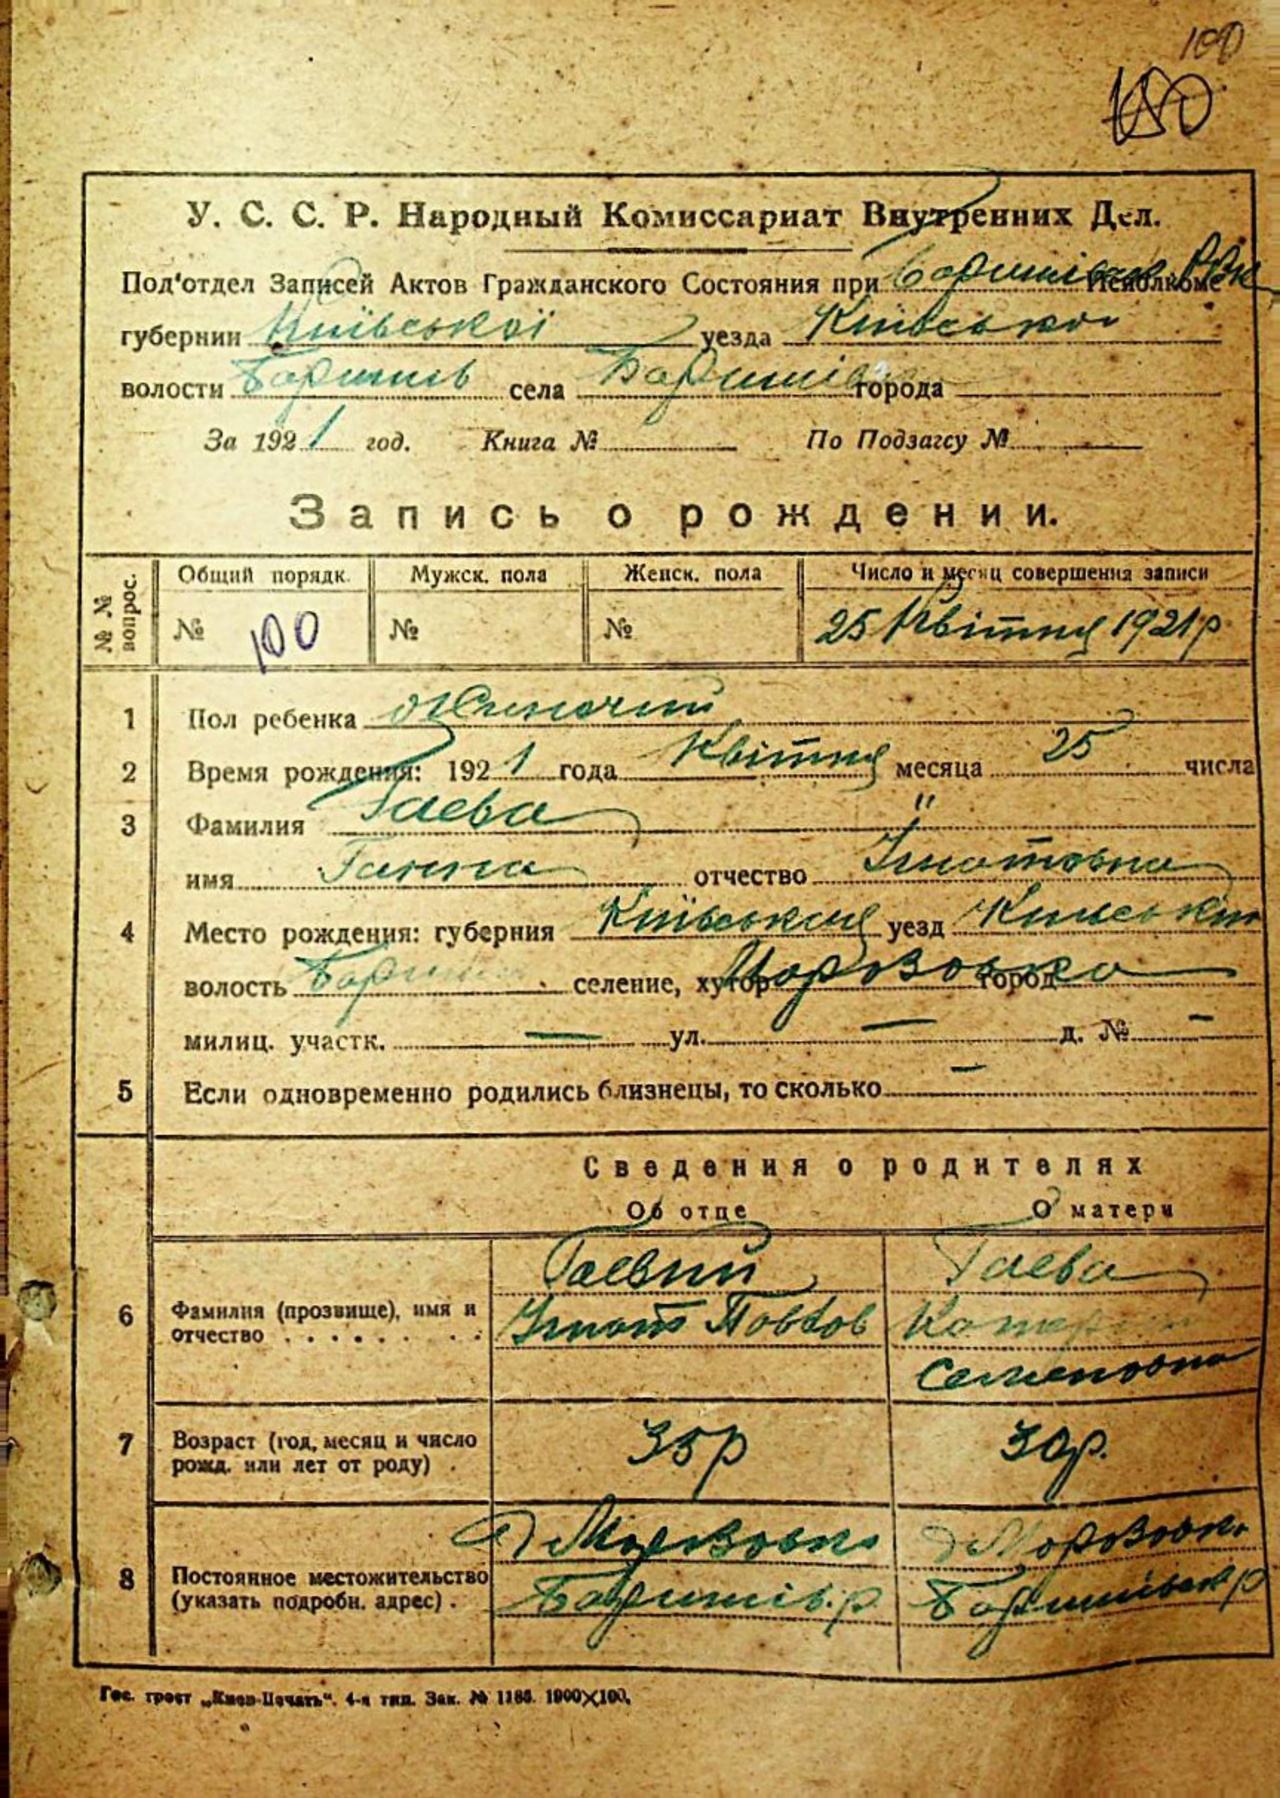 100
100
У. С. С. Р. Народный Комиссариат Внутренних Дел.
Под'отдел Записей Актов Гражданского Состояния при Исполкоме
губернии Київської уезда Київськой
волости Баришів села Баришівка города
За 1921 год. Книга № По Подзагсу №
Запись о рождении.
№ № вопрос. Общий порядк. Мужск. пола Женск. пола Число и месяц совершения записи
№ 100 № № 25 Квітня 1921 р
1 Пол ребенка Жиночий
2 Время рождения: 1921 года Квітня месяца 25 числа
3 Фамилия Гаева "
имя Ганна отчество Ігнатовна
4 Место рождения: губерния Київськая уезд Київський
волость селение, хутор город
милиц. участк. — ул. — д. № —
5 Если одновременно родились близнецы, то сколько —
Сведения о родителях
Об отце О матери
6 Фамилия (прозвище), имя и отчество . . . . . . . . Гаевий Гаева
Ігнат Павлов
Семеновна
7 Возраст (год, месяц и число рожд. или лет от роду) . 35 р 30 р.
8 Постоянное местожительство (указать подробн. адрес) .
Баришів. р Баришівск. р
Гос. трест „Киев-Печать“. 4-я тип. Зак. № 1186. 1900×100.